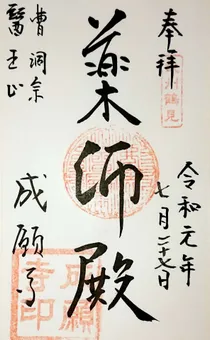 奉拝
鶴見
令和元年
七月二十七日
薬師殿
曹洞宗
醫王山
成願寺
成願寺印